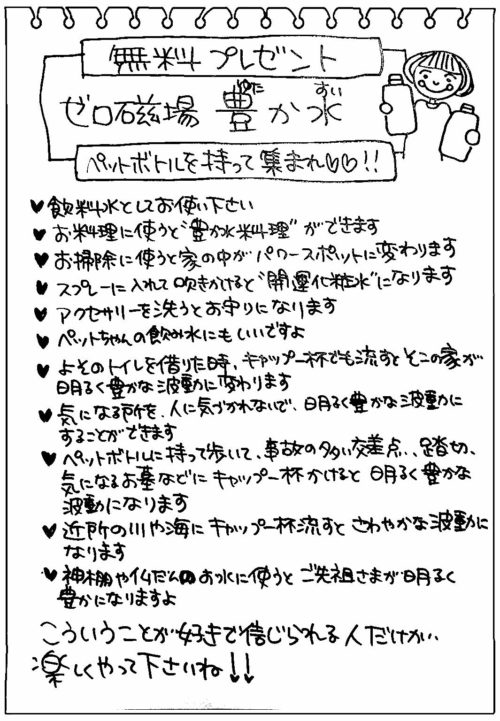 無料プレゼント
ゼロ磁場 豊か水
ゆた すい
ペットボトルを持って集まれ♡♡!!
♥飲料水としてお使い下さい
♥お料理に使うと"豊か水料理"ができます
♥お掃除に使うと家の中がパワースポットに変わります
♥スプレーに入れて吹きかけると"開運化粧水"になります
♥アクセサリーを洗うとお守りになります
♥ペットちゃんの飲み水にもいいですよ
♥よそのトイレを借りた時、キャップ一杯でも流すとそこの家が
明るく豊かな波動に変わります
♥気になる所を、人に気づかれないで、明るく豊かな波動に
することができます
♥ペットボトルに持って歩いて、事故の多い交差点、踏切、
気になるお墓などにキャップ一杯かけると明るく豊かな
波動になります
♥近所の川や海にキャップ一杯流すとさわやかな波動に
なります
♥神棚や仏だんのお水に使うとご先祖さまが明るく
豊かになりますよ
こういうことが好きで信じられる人だけが、
楽しくやって下さいね↓↓